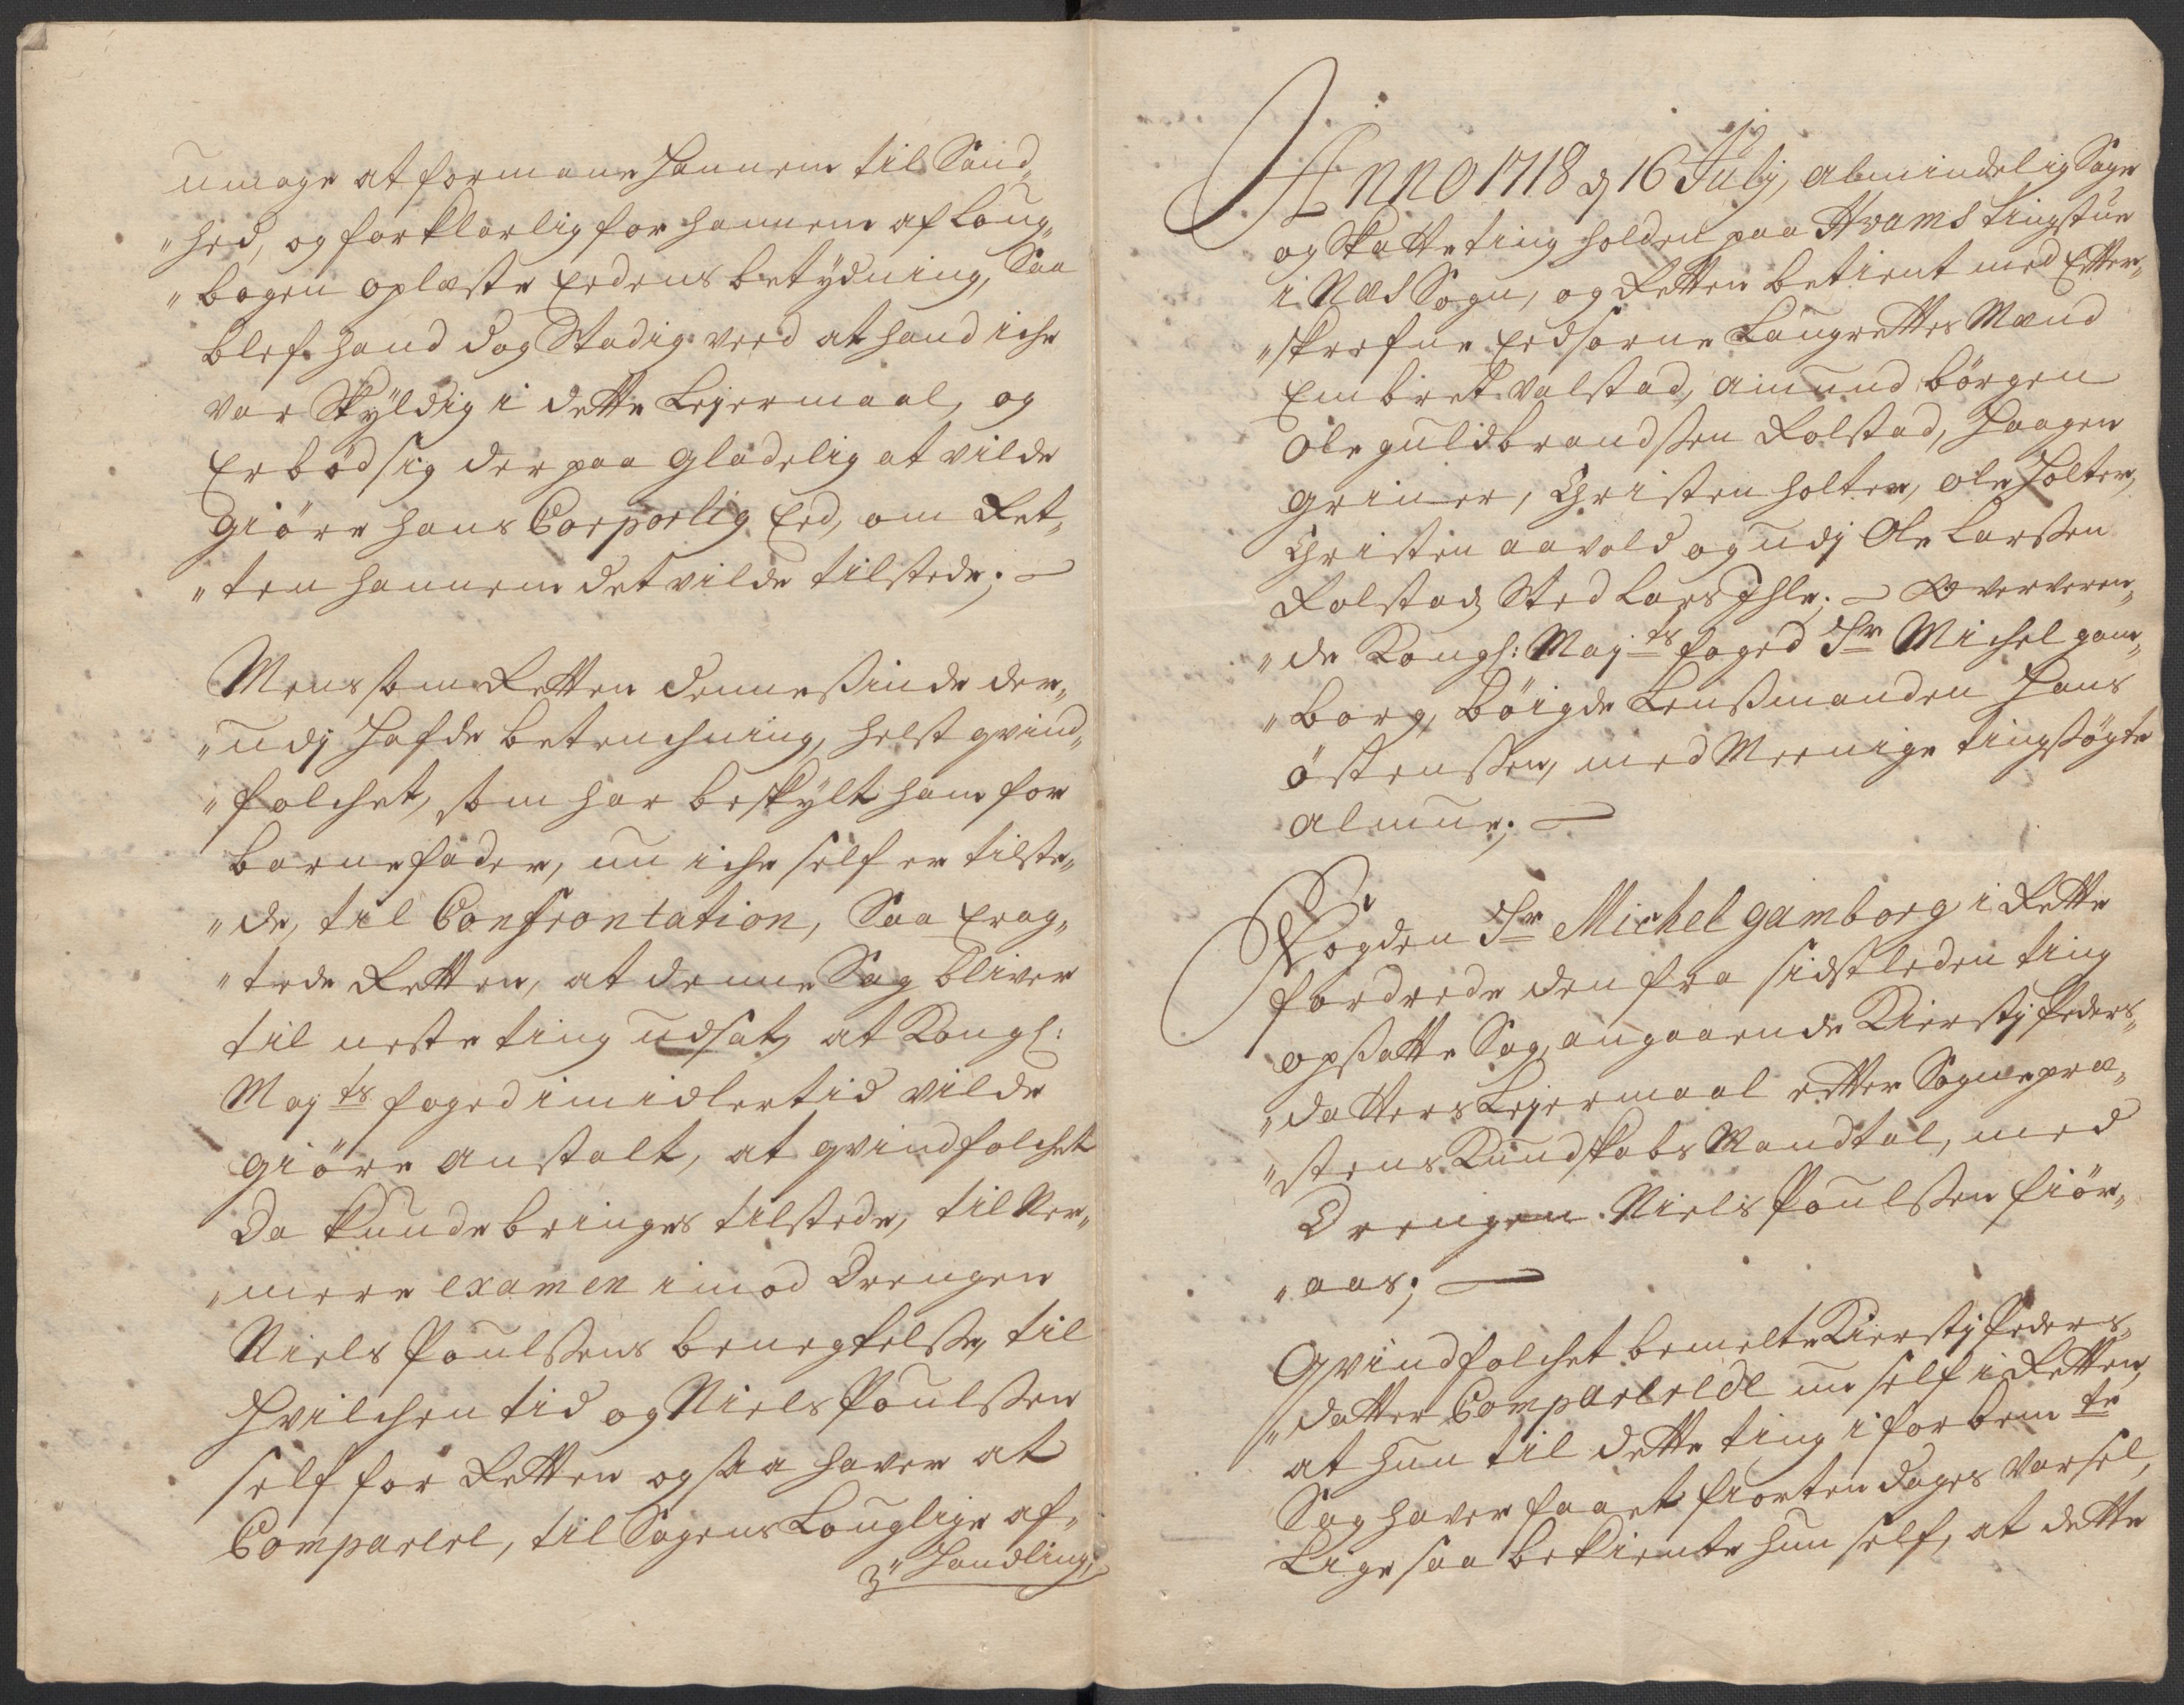 umage at formane hannem til Sand„
„hed, og forklarlig for hannem af Loug„
„bogen oplæste Eedens betydning, Saa
blef hand dog Stadig ved at hand iche
var Skÿldig i dette Leÿermaal, og
Erbød sig der paa gladelig at vilde
giöre hans Corporlig Eed, om Ret„
„ten hannem det vilde tilstede; —
Mens som Retten dennesinde der„
„udj hafde betenchning, helst qvind„
„folchet, som har beskÿlt ham for
barnefader, nu iche self er tilste„
„de, til Confrontation, Saa Erag„
„tede Retten, at denne Sag bliver
til neste ting udsat, at Kongl:
Maÿts foged imidlertid vilde
giöre anstalt, at qvindfolchet
da kunde bringes tilstede, til Ner„
„mere examen imod Drengen
Niels Poulssens benegtelsse, til
hvilchen tid og Niels Poulssen
self for Retten ogsaa haver at
Comparere, til Sagens Louglige af„
„handling;
Anno 1718 d 16 Julj, almindelig Sage
og Skatte ting holden paa Hvams tingstue
i Næs Sogn, og Retten betient med Efter„
„skrefne Eedsorne Laugrettes Mænd
Embret Valstad, amund börgen
Ole guldbrandssen Rolstad, Haagen
griner, Christen holter, ole Holter,
Christen aavold og udj Ole Larssen
Rolstads Sted Lars Ihle; — Oververen„
„de Kongl: Maÿts foged Sr Michel gam„
„borg, böigde Lensmanden Hans
östenssen, med Meenige tingsögte
almue; —
Fogden Sr Michel gamborg i Rette
fordrede den fra sidstleden ting
opsatte Sag, angaaende Kierstj Peders„
„datters Leÿermaal efter Sognepræ„
„stens Kundskabs Mandtal, med
Drengen Niels Poulssen fiör„
„aas; —
Qvindfolchet bemelte Kierstj Peders„
„datter Comparerede nu self i Retten,
at hun til dette ting i forbemte
Sag haver faaet fiorten dages Varsel,
Lige saa bekiente hun self, at dette